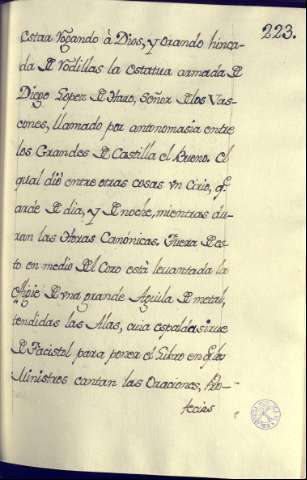 223.
estar rogando à Dios, y orando hinca-
da de rodillas la estatua armada de
Diego Lopez de Haro, Señor de los Vas-
cones, llamado por antonomasia entre
los Grandes de Castilla el Bueno. el
qual dió entre otras cosas vn Cirio, q̃
arde de dia, y de noche, mientras du-
ran las Horas Canónicas. Fuera de es-
to en medio del Coro està leuantada la
efigie de vna grande Aguila de metal,
tendidas las Alas, cuia espalda sirue
de Facistol para poner el Libro en q̃ los
Ministros cantan las Oraciones, Pro-
fecias